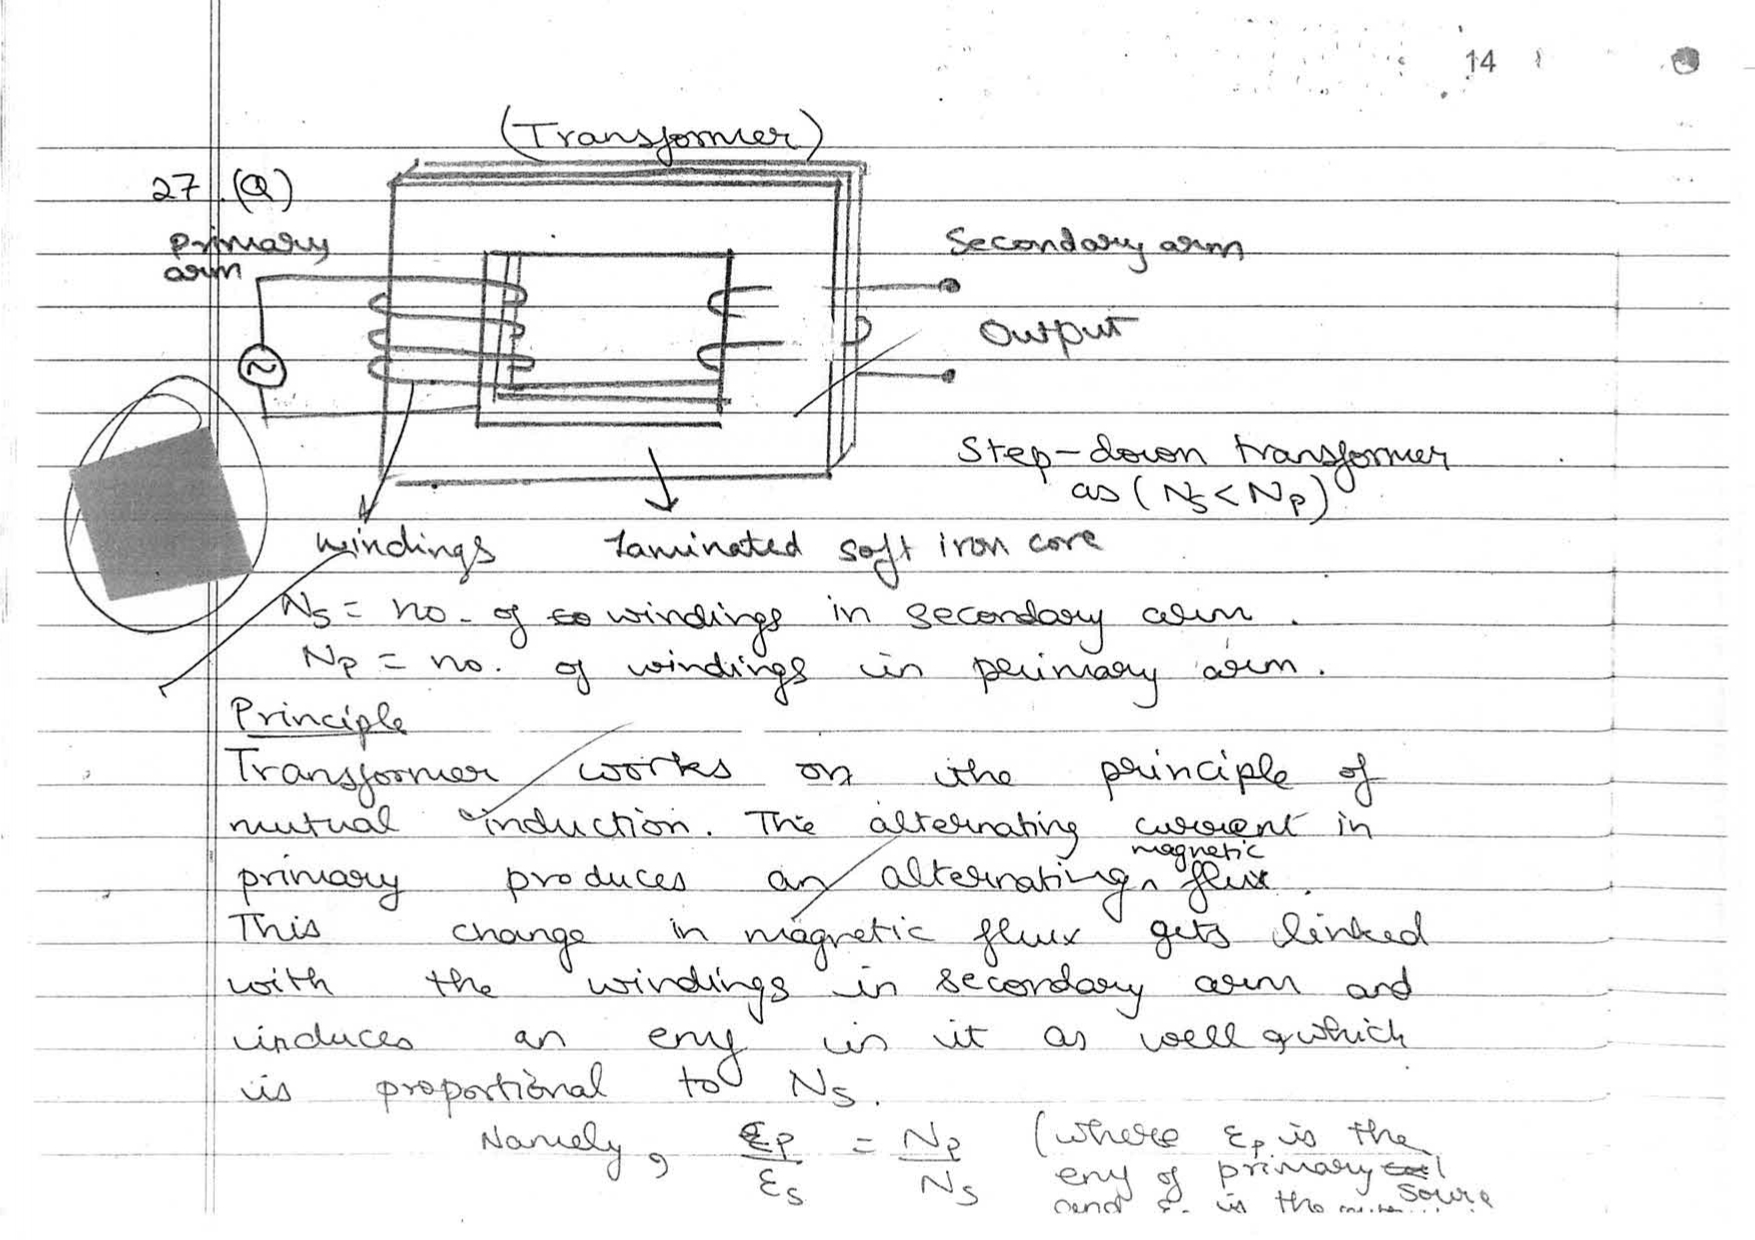 14
(Transformer)
27. (a)
Primary
arm
Secondary arm
Output
Step-down transformer
as (Ns < Np)
windings
Laminated soft iron core
Ns = no. of windings in secondary arm.
Np = no. of windings in primary arm.
Principle
Transformer works on the principle of
mutual induction. The alternating current in
primary produces an alternating magnetic flux.
This change in magnetic flux gets linked
with the windings in secondary arm and
induces an emf in it as well, which
is proportional to Ns.
Namely, εp/εs = Np/Ns (where εp is the
emf of primary
source
and εs is the